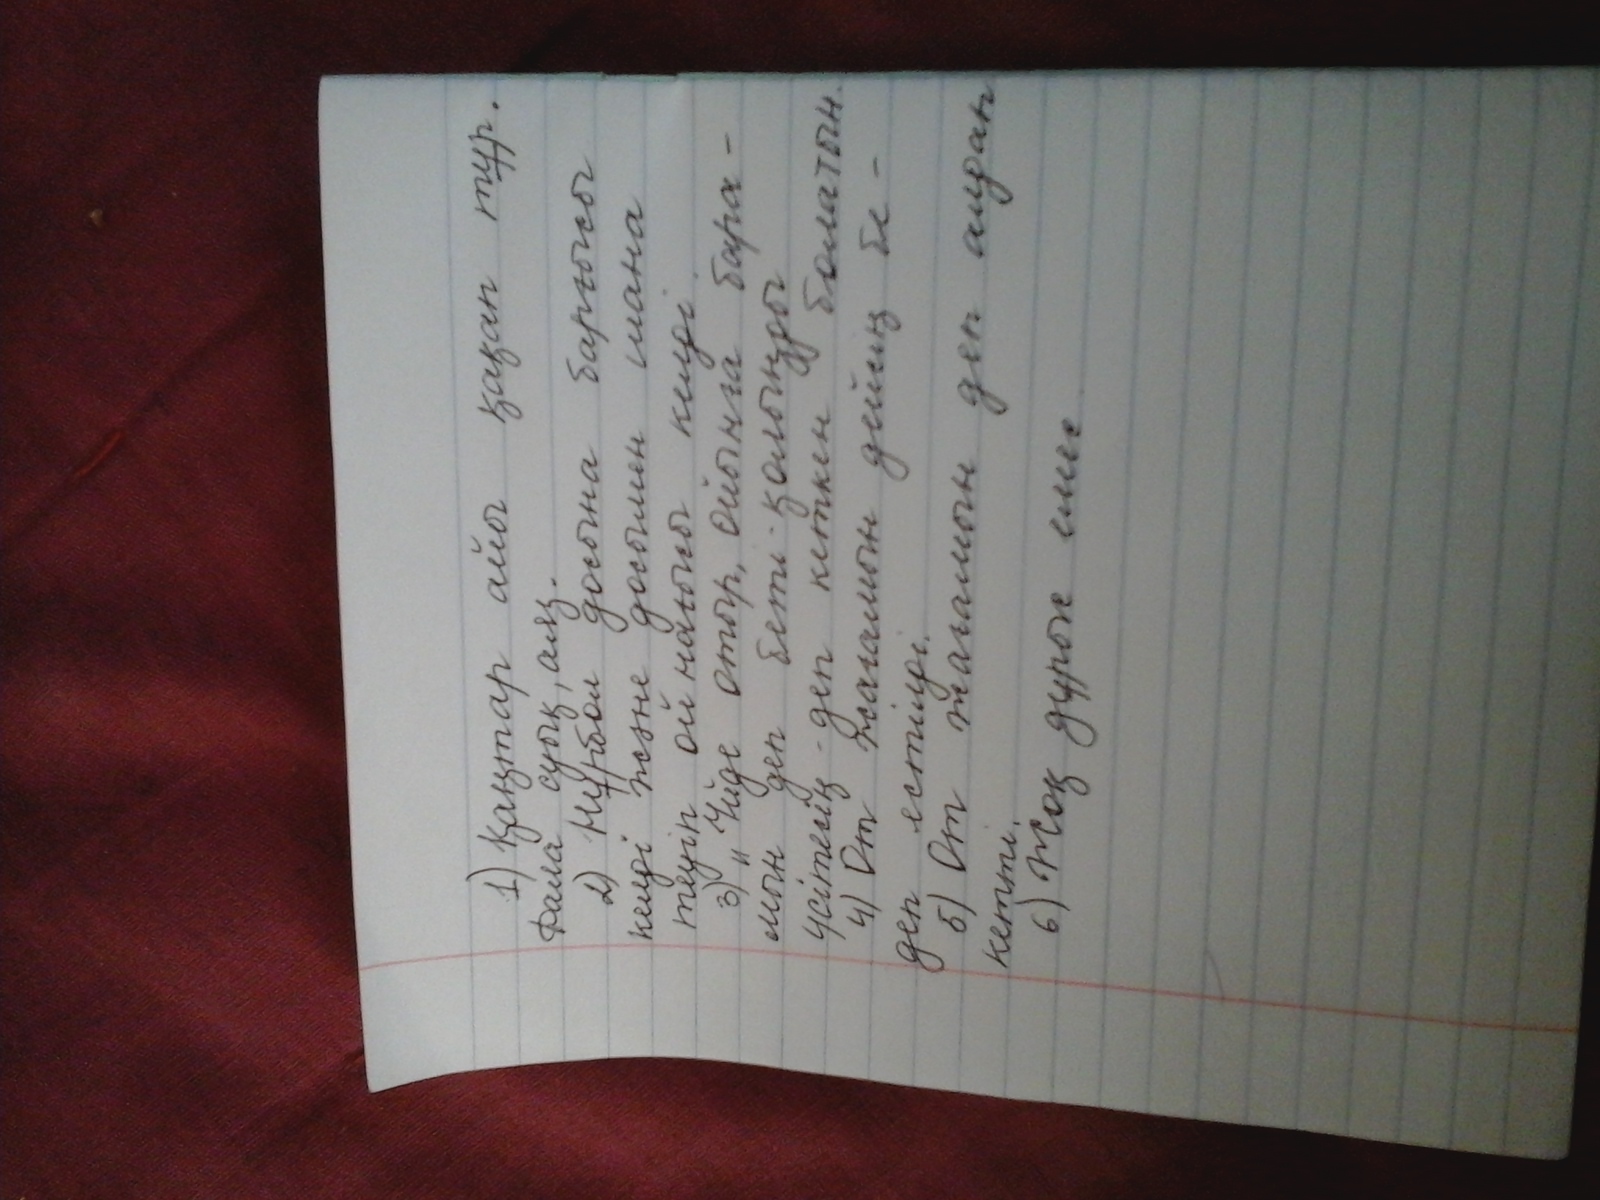 1) Қаңтар айы қақап тұр.
Дала суық, аяз.
2) Нұрбол досына барғысы
келді және досымен шана
теуіп ойнағысы келді.
3) Үйде отыр, ойынға бара-
мын деп бетi-қолыңды
үсітесің-деп кеткен болатын.
4) От жағамын дейің бе-
деп естіді.
5) От жағамын деп алдап
кетті.
6) Жоқ дұрыс емес.